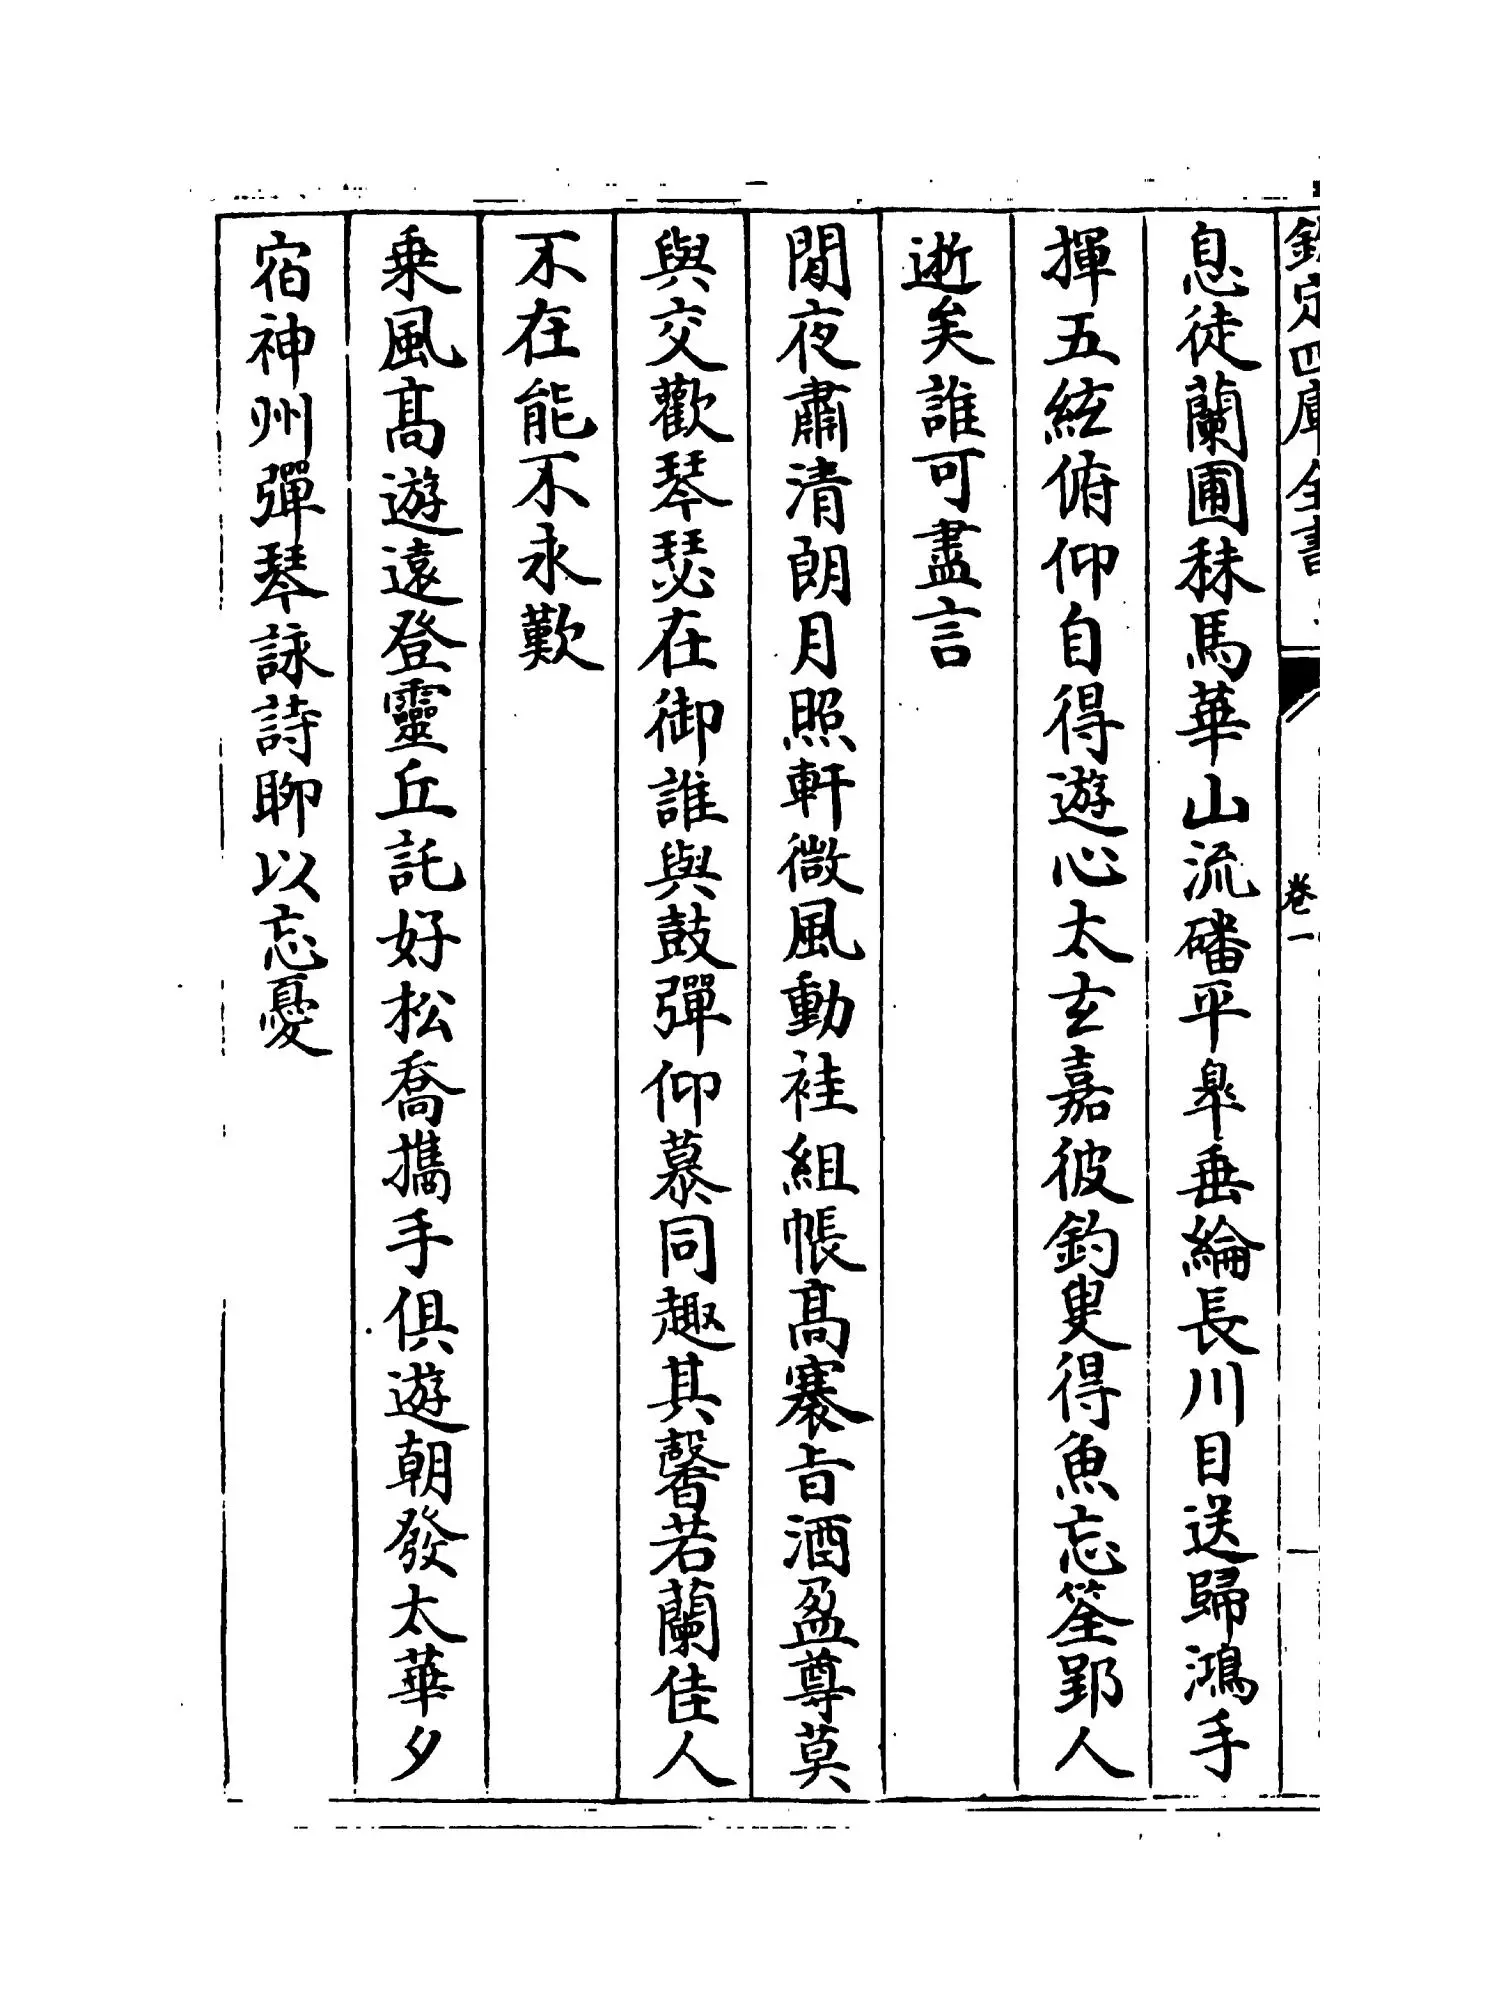 欽定四庫全書
卷一
息徒蘭圃秣馬華山流磻平臯垂綸長川目送歸鴻手
揮五絃俯仰自得遊心太玄嘉彼釣叟得魚忘筌郢人
逝矣誰可盡言
閒夜肅清朗月照軒微風動袿組帳髙褰旨酒盈尊莫
與交歡琴瑟在御誰與鼓彈仰慕同趣其馨若蘭佳人
不在能不永歎
乗風髙遊遠登靈丘託好松喬攜手俱遊朝發太華夕
宿神州彈琴詠詩聊以忘憂